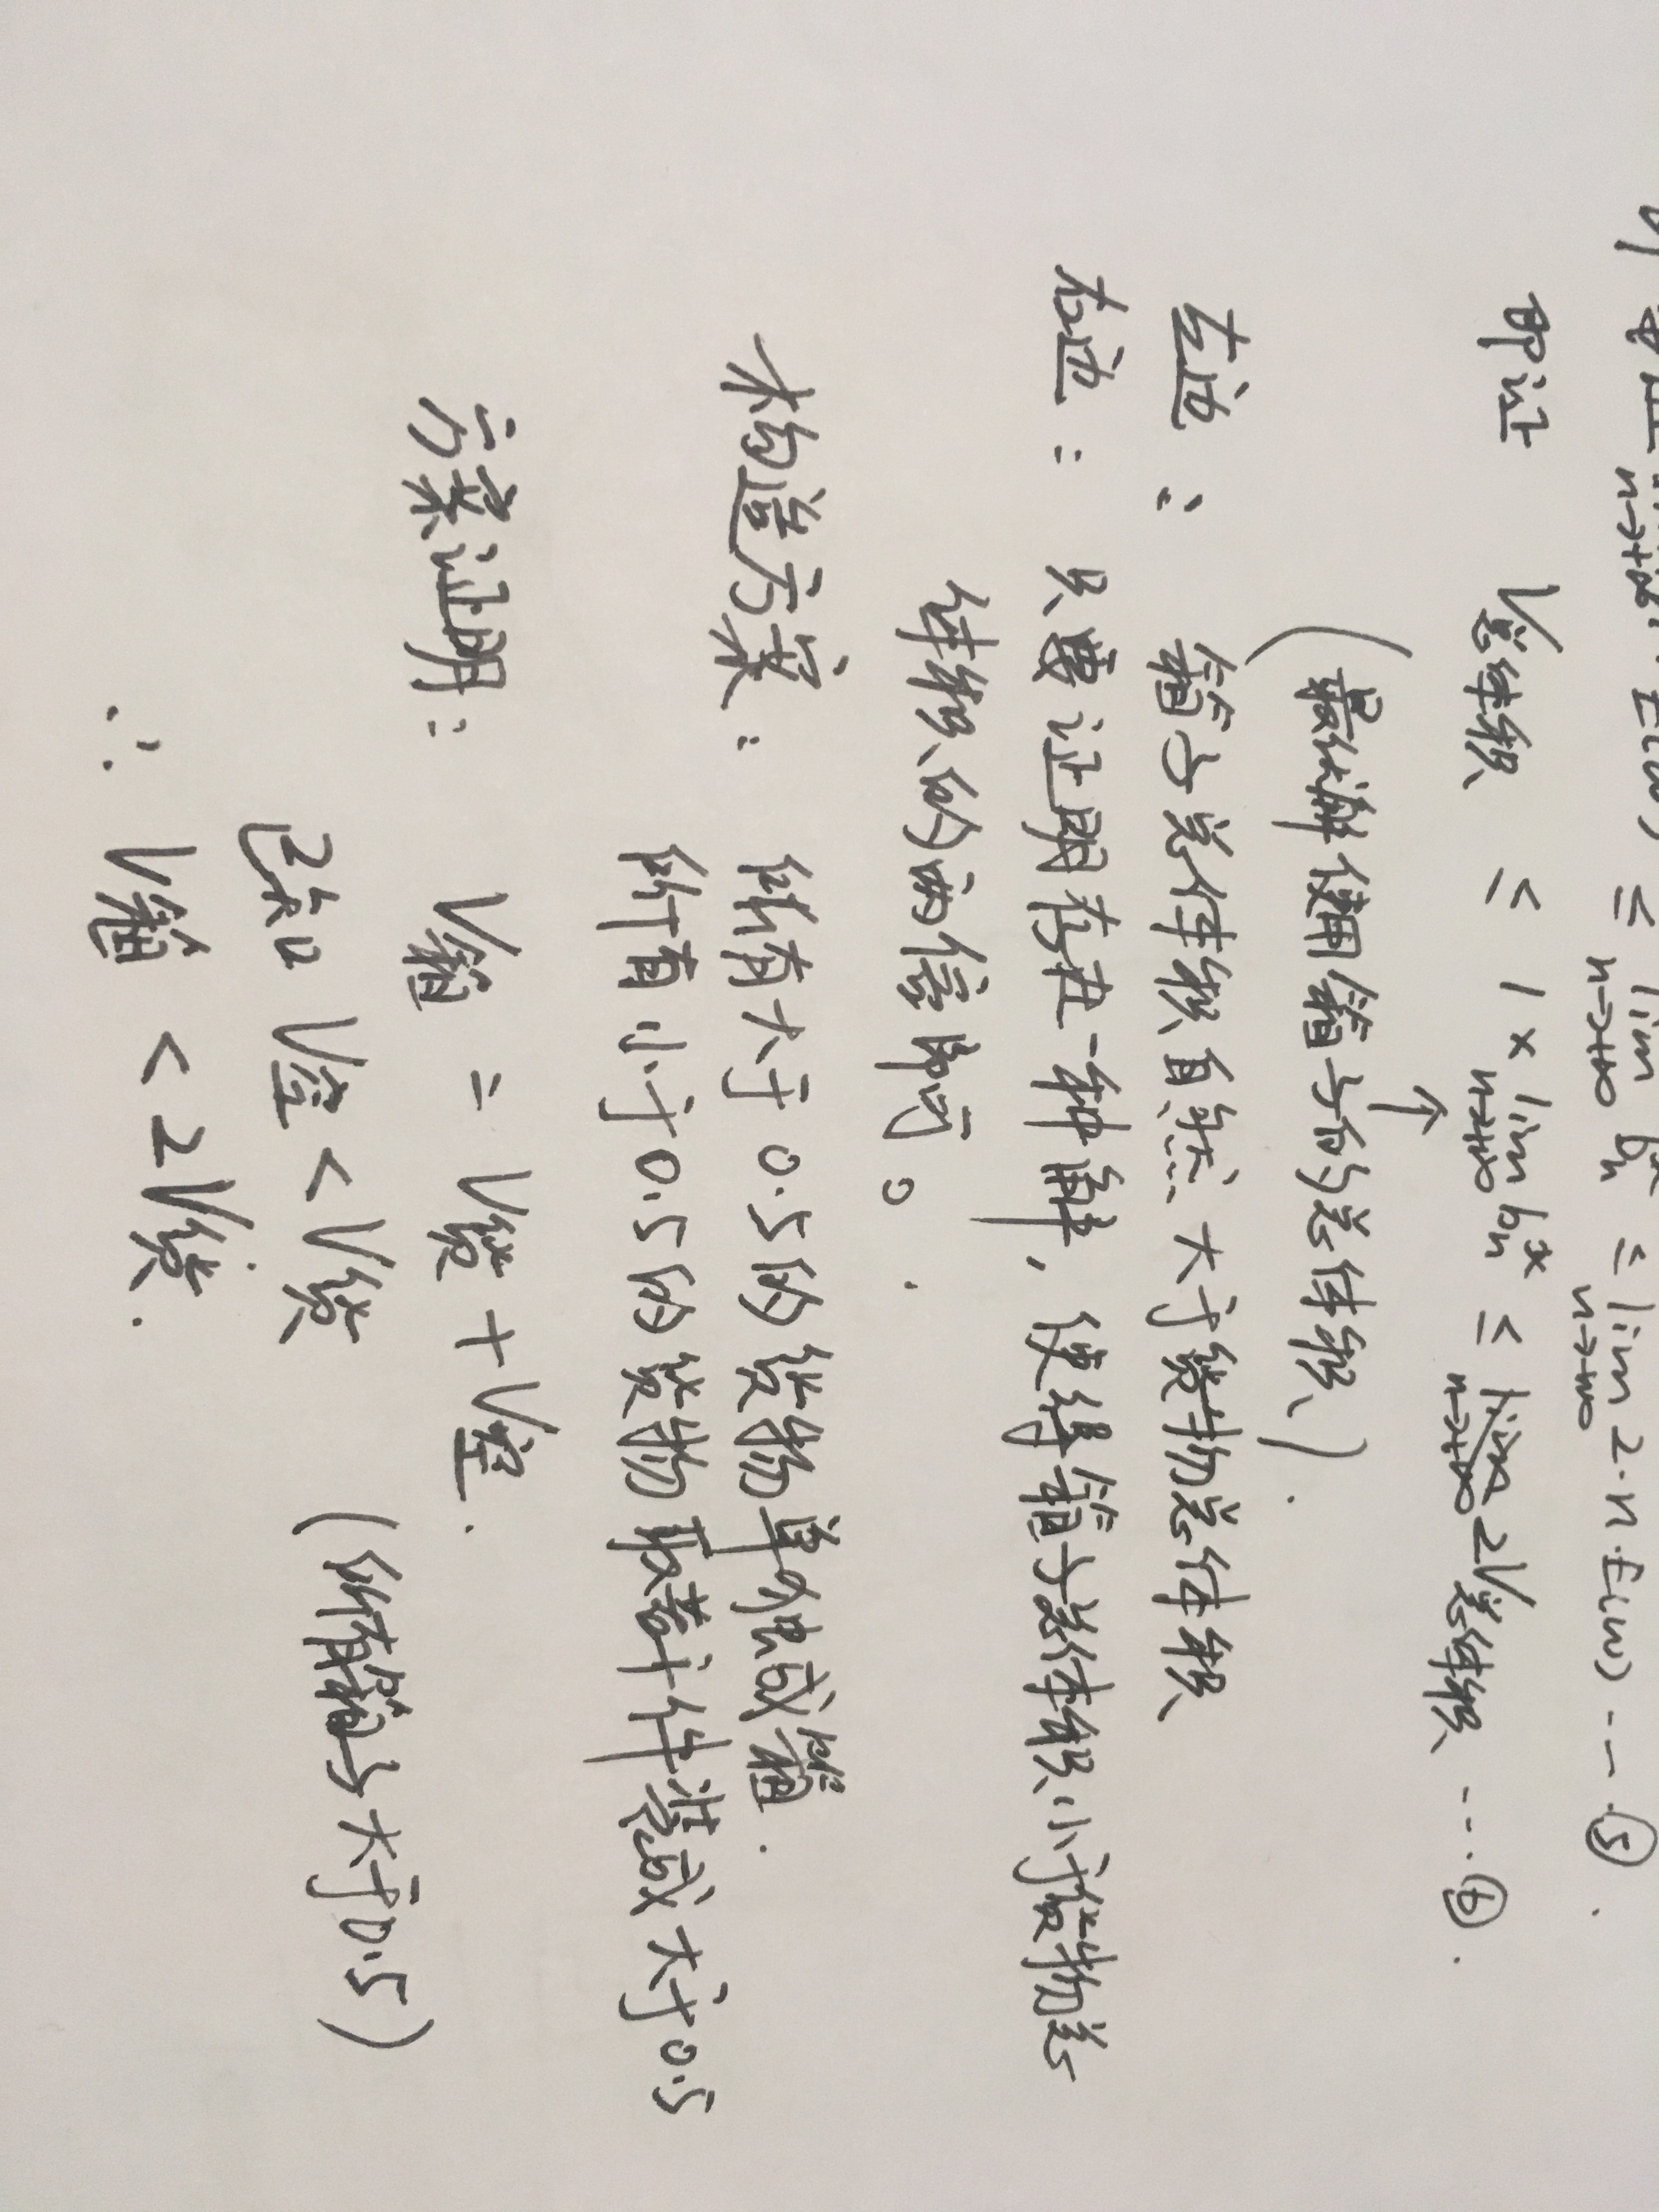 n→+∞ E(w) ≤ lim n→+∞ bn* = lim n→+∞ 2·n·E(w) ---- ⑤.
即证 V总体积 ≤ 1× lim n→+∞ bn* ≤ n→+∞ 2V总体积 --- ⑥.
↑
(最优解使用箱子的总体积).
左边: 箱子总体积自然大于货物总体积
右边: 只要证明存在一种解,使得箱子总体积小于货物总
体积的两倍即可。
构造方案: 所有大于0.5的货物单独成箱.
所有小于0.5的货物取若干件装成大于0.5
方案证明: V箱 = V货 + V空.
已知 V空 < V货 (所有箱子大于0.5)
∴ V箱 < 2V货.